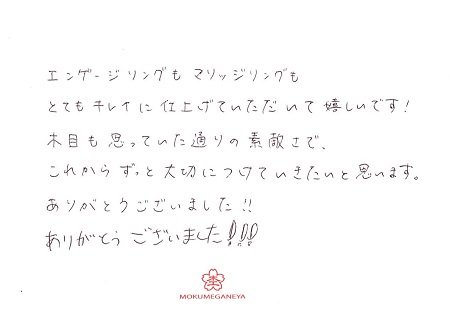 エンゲージリングも マリッジリングも
とてもキレイに仕上げていただいて嬉しいです!
木目も思っていた通りの素敵さで、
これからずっと大切につけていきたいと思います。
ありがとうございました!!
ありがとうございました!!!
MOKUMEGANEYA